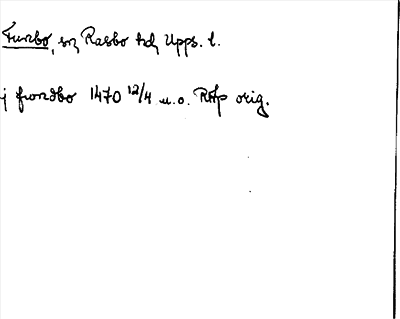 Funbo, sn Rasbo hd, Upps. l.
j fwndbo 1470 12/4 u.o. RAp orig.